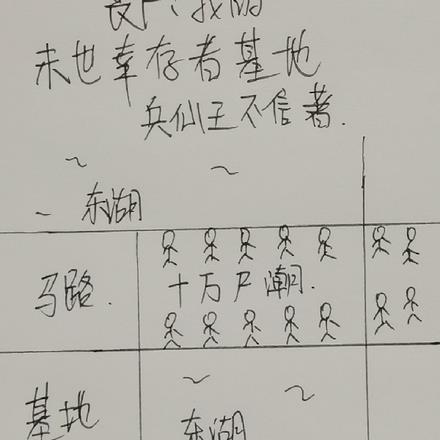 丧尸：我的
末世幸存者基地
兵仙王不信著.
东湖
马路.
十万尸潮.
基地
东湖